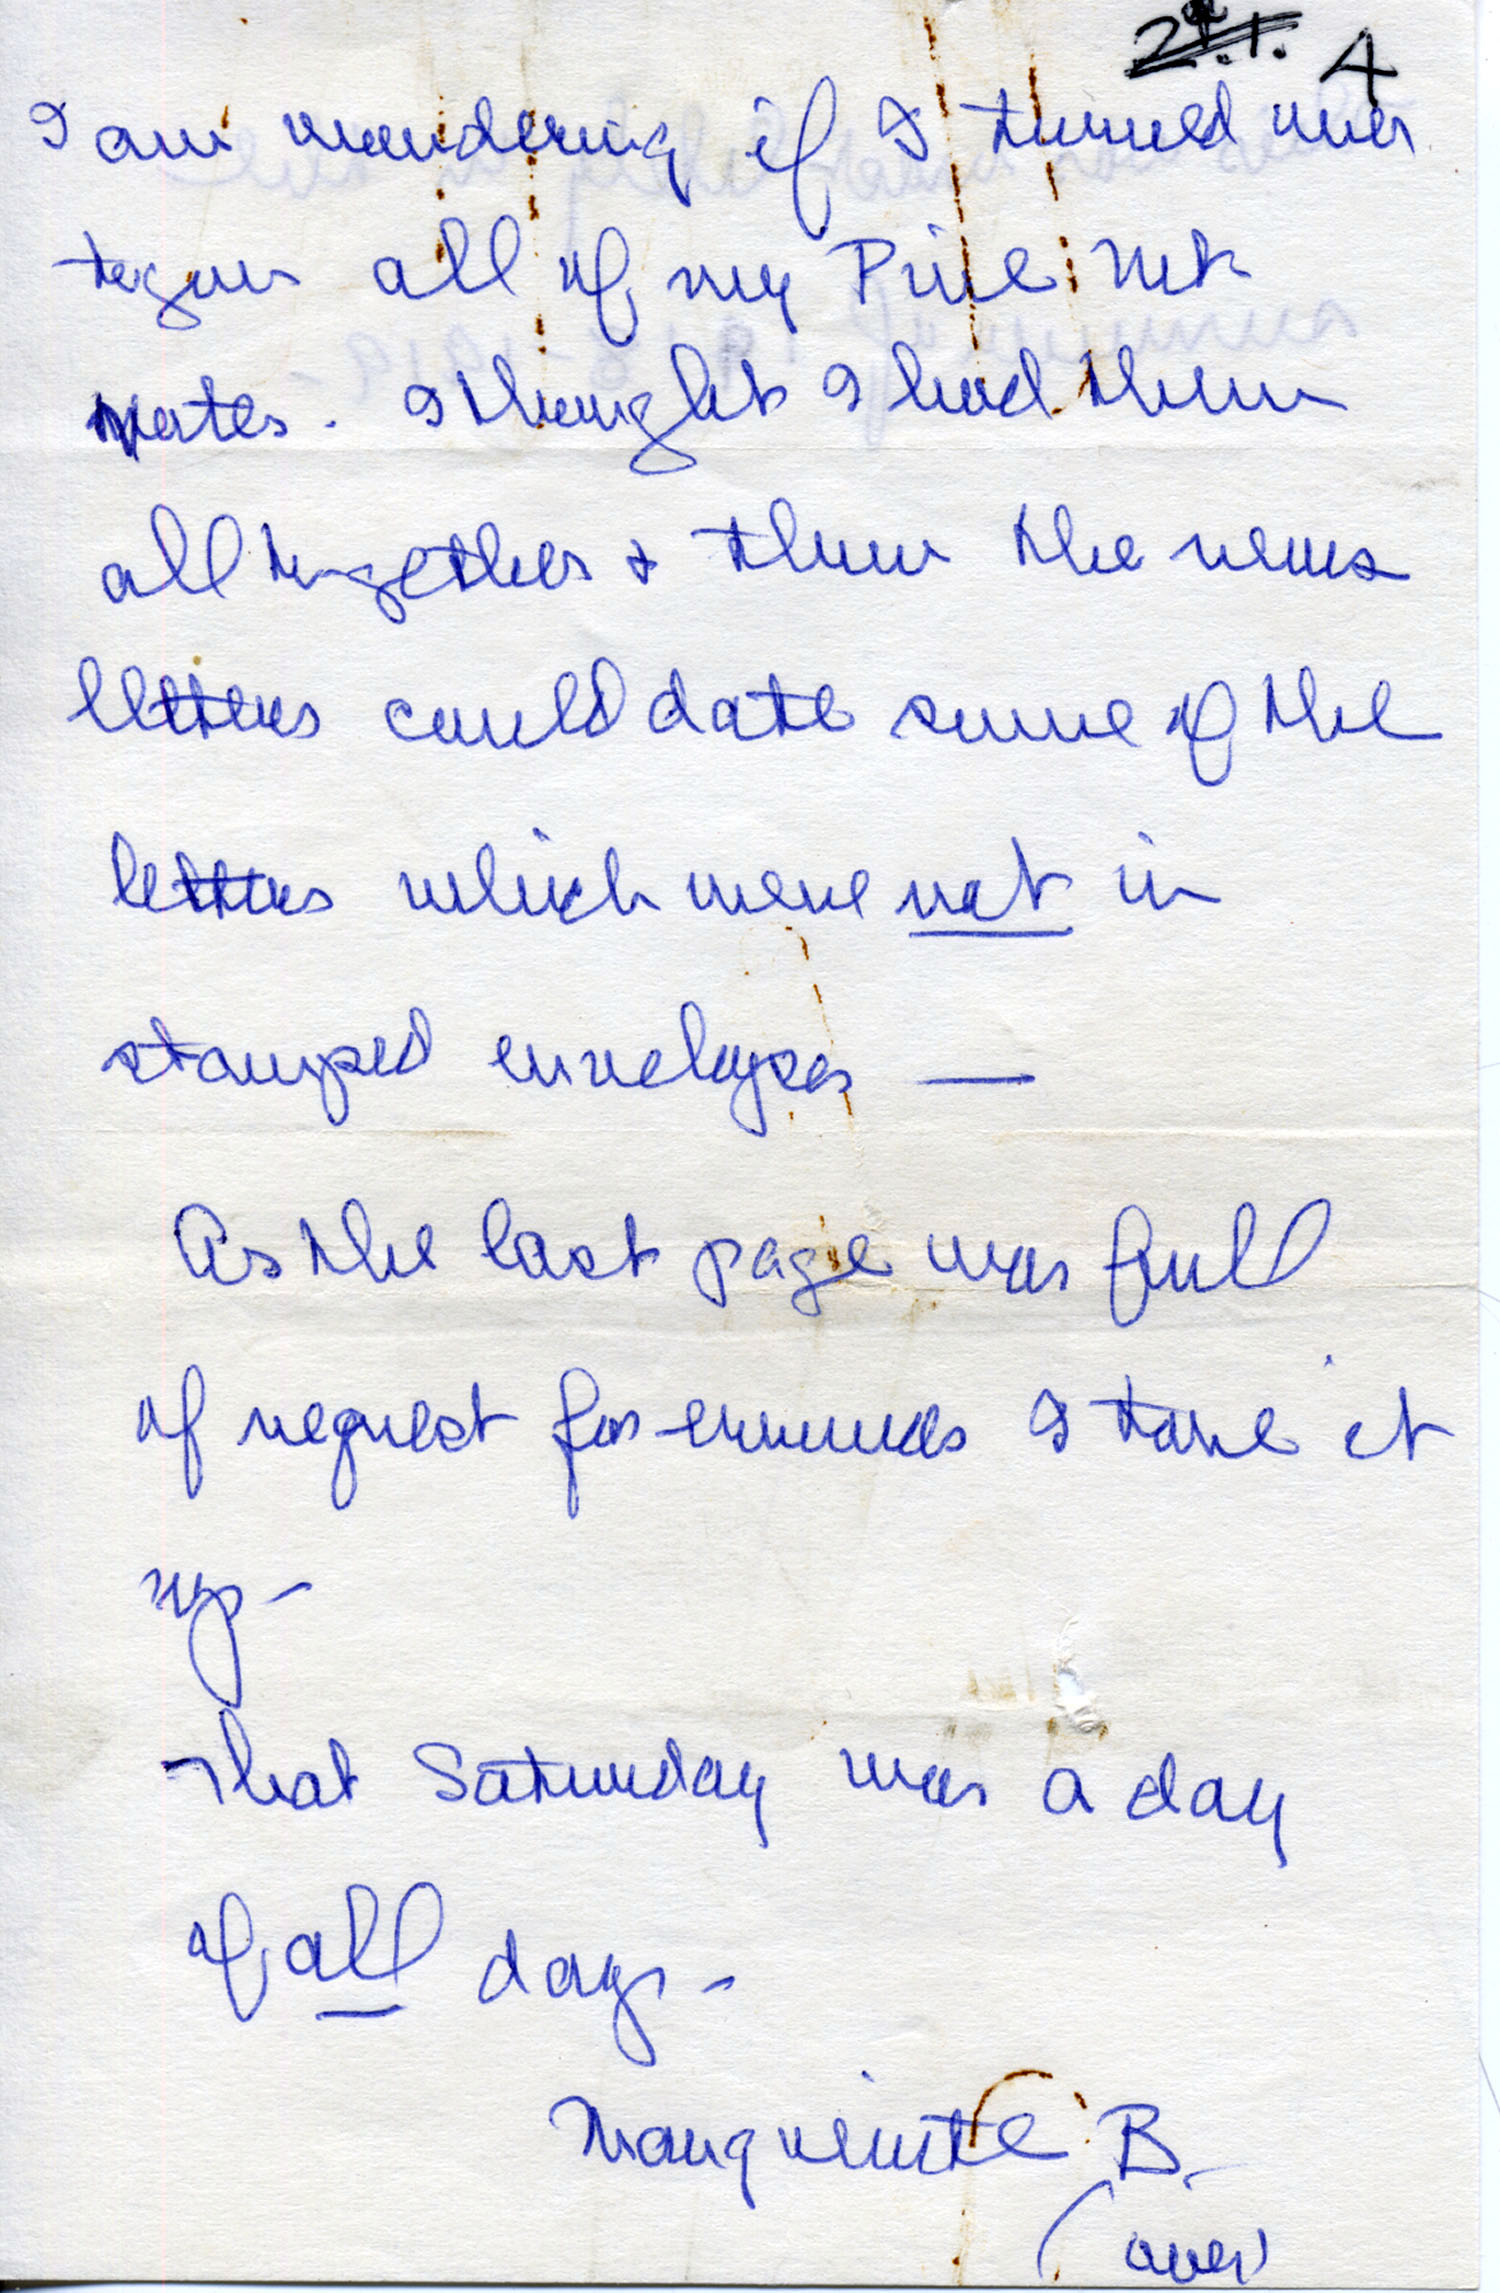 2.1. A
I am wondering if I turned over
to you all of my Pine Mt.
notes. I thought I had them
all together & then the news
letters could date some of the
letters which were not in
stamped envelopes —
As the last page was full
of request for errands I tore it
up –
That Saturday was a day
of all days –
Marguerite B.
(over)